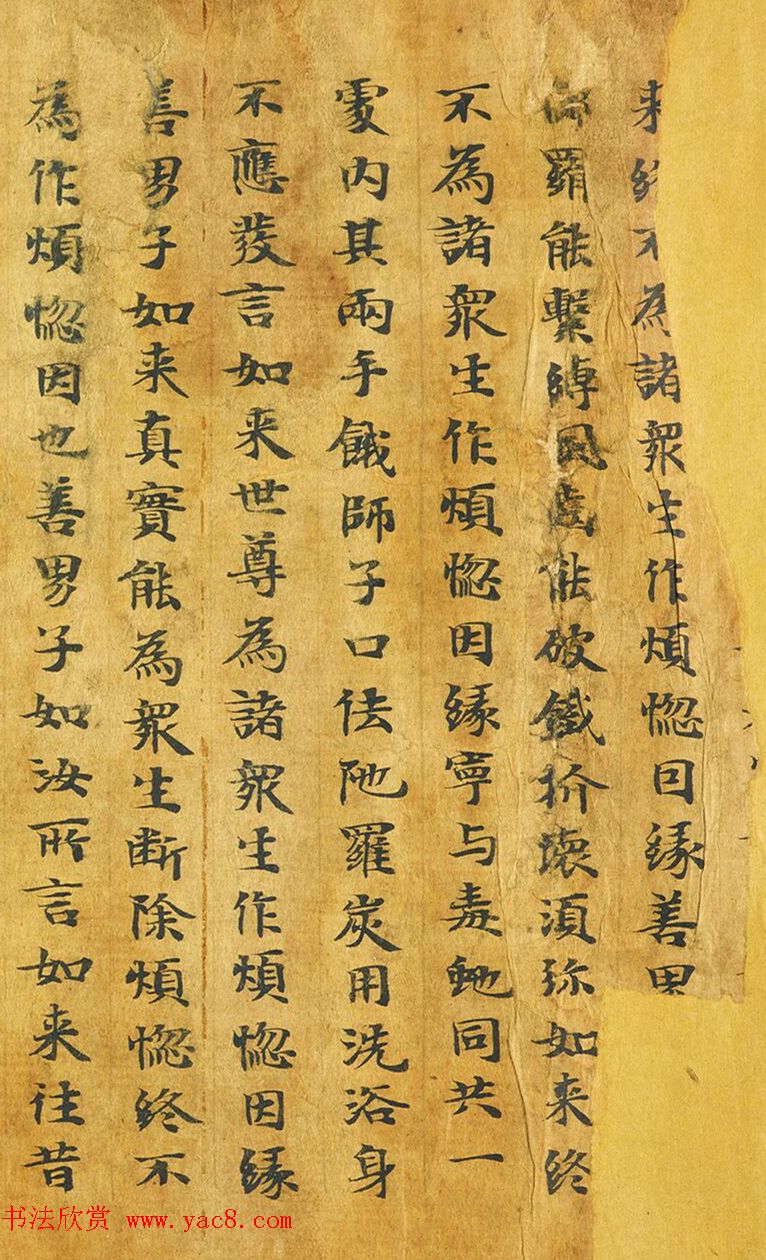 来終不為諸衆生作煩惱因緣善男
羂能繫縛風齒能破鐵抓壞湏弥如来終
不為諸衆生作煩惱因緣寧与毒虵同共一
處内其兩手餓師子口佉陁羅炭用洗浴身
不應發言如来世尊為諸衆生作煩惱因緣
善男子如来真實能為衆生斷除煩惱終不
為作煩惱因也善男子如汝所言如来往昔
书法欣赏 www.yac8.com